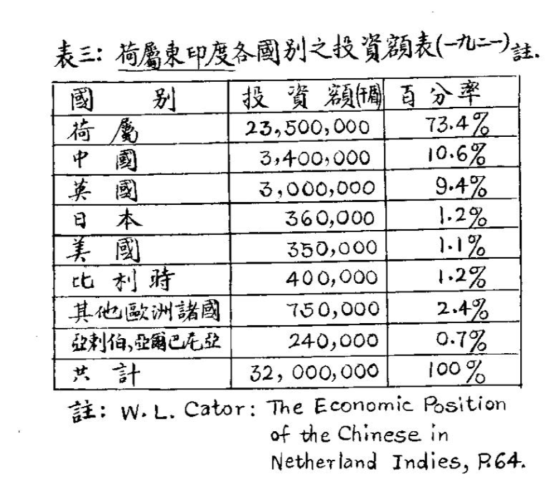 表三：荷屬東印度各國別之投資額表(一九二一)註.
國別 投資額(千盾) 百分率
荷屬 23,500,000 73.4%
中國 3,400,000 10.6%
英國 3,000,000 9.4%
日本 360,000 1.2%
美國 350,000 1.1%
比利時 400,000 1.2%
其他歐洲諸國 750,000 2.4%
亞剌伯,亞爾巴尼亞 240,000 0.7%
共計 32,000,000 100%
註：W.L. Cator: The Economic Position
of the Chinese in
Netherland Indies, P.64.